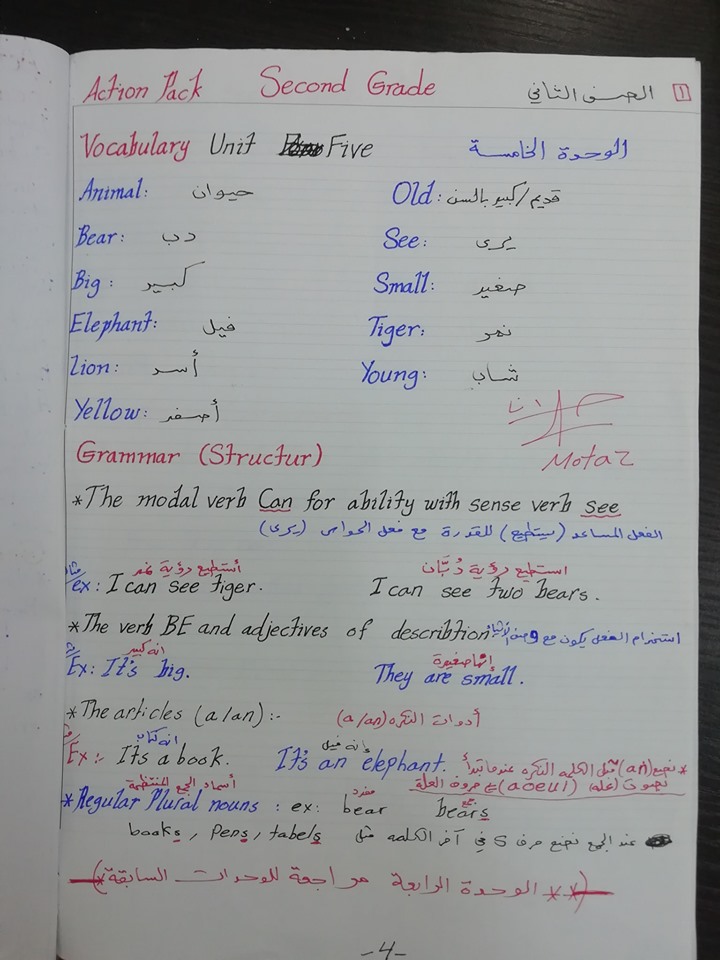 Action Pack Second Grade الصف الثاني 1
Vocabulary Unit Five الوحدة الخامسة
Animal: حيوان Old: قديم/كبير بالسن
Bear: دب See: يرى
Big: كبير Small: صغير
Elephant: فيل Tiger: نمر
lion: أسد Young: شاب
Yellow: أصفر
Motaz
Grammar (Structur)
*The modal verb Can for ability with sense verb see
الفعل المساعد (يستطيع) للقدرة مع فعل الحواس (يرى)
أستطيع رؤية نمر استطيع رؤية دُبّان
ex: I can see tiger. I can see two bears.
*The verb BE and adjectives of describtion استخدام الفعل يكون مع وصف الأشياء
انه كبير إنها صغيرة
Ex: It's big. They are small.
*The articles (a/an):- أدوات النكره (a/an)
انه كتاب إنه فيل
Ex:- It's a book. It's an elephant. *نضع (an) قبل الكلمه النكره عندما تبدأ
بصوت (عله) (aoeui) حروف العلة
أسماء الجمع المنتظمة مفرد جمع
*Regular Plural nouns: ex: bear bears
books, pens, tabels عند الجمع نضع حرف S في آخر الكلمه مثل
** الوحدة الرابعة مراجعة للوحدات السابقة *
-4-